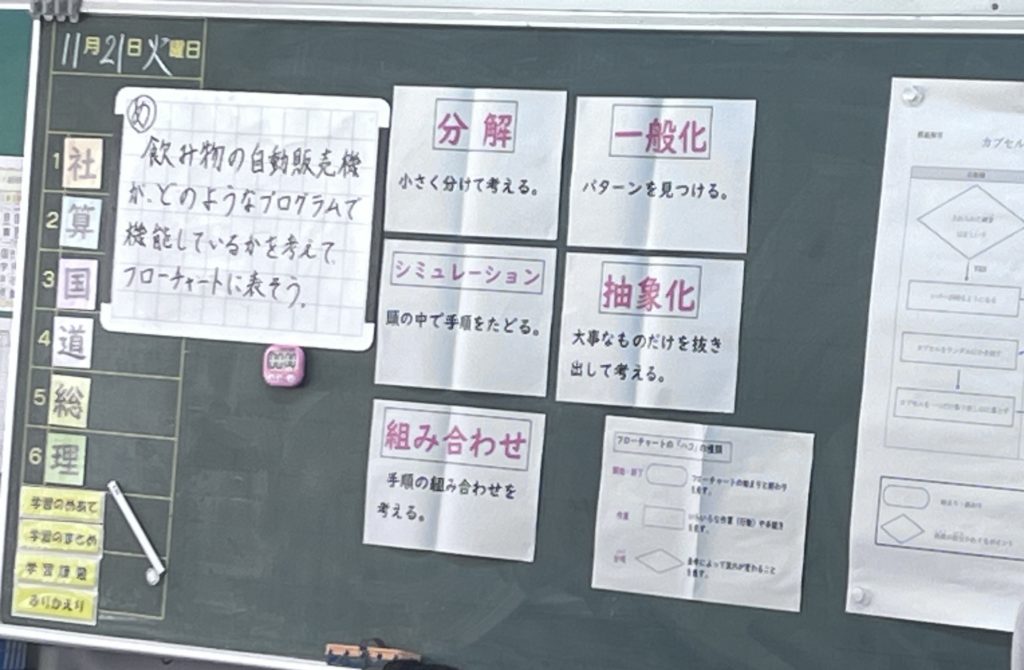 11月21日火曜日
1 社
2 算
3 国
4 道
5 総
6 理
学習のめあて
学習のまとめ
学習課題
ふりかえり
め
飲み物の自動販売機
が、どのようなプログラムで
機能しているかを考えて、
フローチャートに表そう。
分解
小さく分けて考える。
一般化
パターンを見つける。
シミュレーション
頭の中で手順をたどる。
抽象化
大事なものだけを抜き
出して考える。
組み合わせ
手順の組み合わせを
考える。
フローチャートの「ハコ」の種類
開始・終了
フローチャートの始まりと終わり
を示す。
作業
いろいろな作業（行動）や手続き
を示す。
分岐
条件によって流れが変わること
を示す。
カプセル
YES